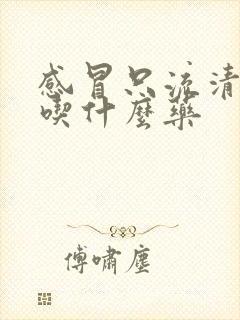 感冒只流清
喫什麼藥
傅嘯塵